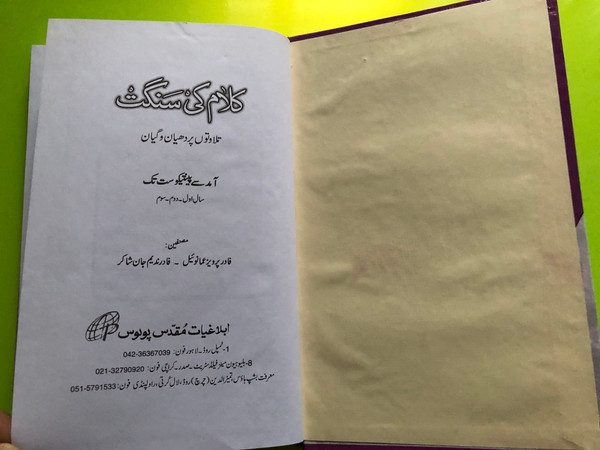 کلام کی سنگت
تلاوتوں پر دھیان و گیان
آمد سے پینتیکوست تک
سال اول۔ دوم۔ سوم
مصنفین:
فادر پرویز عمانوئیل ۔ فادر ندیم جان شاکر
ابلاغیات مقدس پولوس
1-ٹمپل روڈ۔ لاہور فون: 042-36367039
8-بلیو ہیون مینز فیلڈ سٹریٹ۔ صدر۔ کراچی فون: 021-32790920
معرفت بشپ ہاؤس، تمیز الدین (چرچ) روڈ، لال کرتی، راولپنڈی فون: 051-5791533